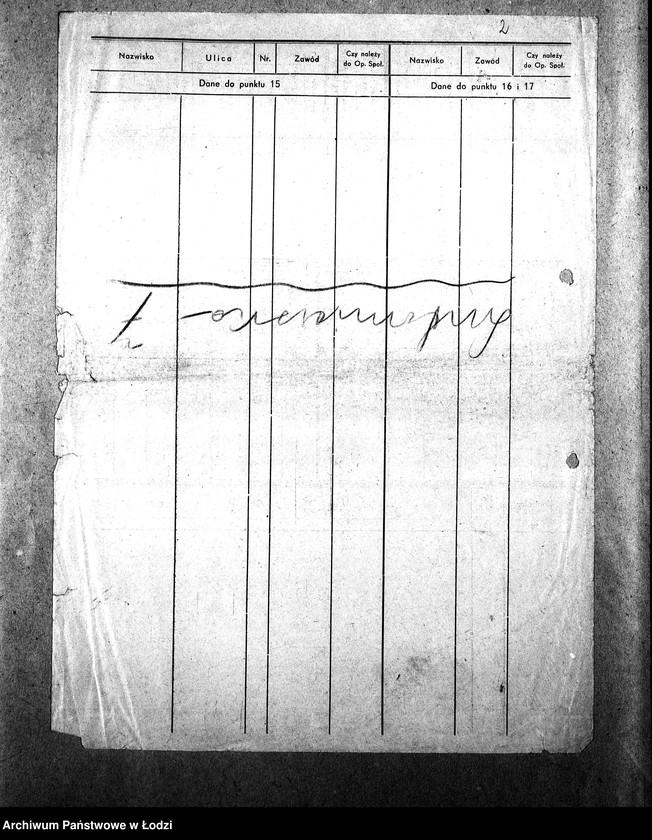 2
Nazwisko Ulica Nr. Zawód Czy należy do Op. Społ. Nazwisko Zawód Czy należy do Op. Społ.
Dane do punktu 15 Dane do punktu 16 i 17
7
Archiwum Państwowe w Łodzi